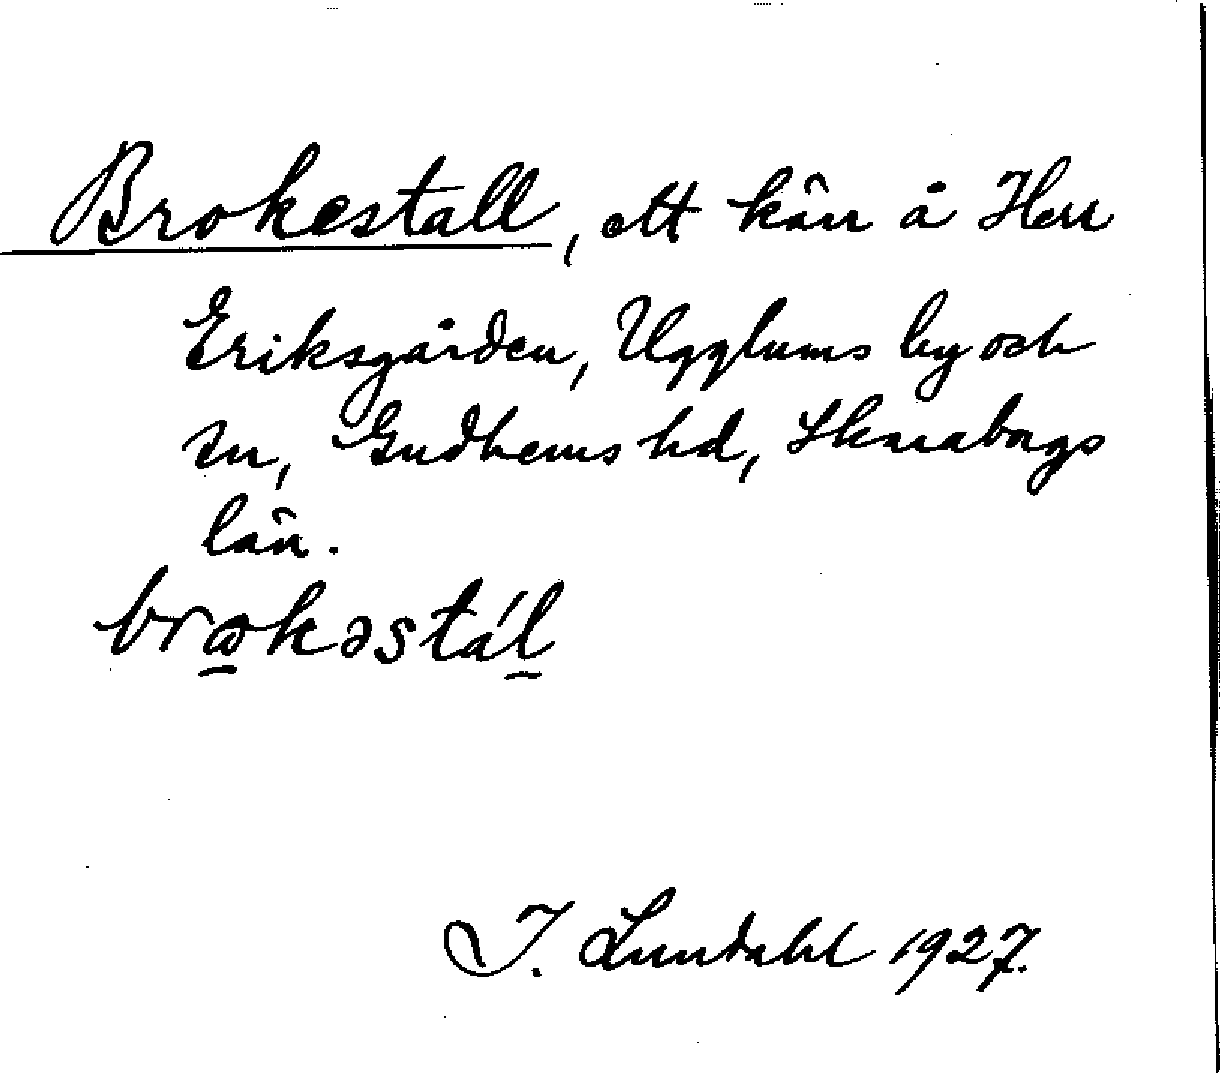 Brokestall, ett kärr å Herr
Eriksgården, Ugglums by och
sn, Gudhems hd, Skaraborgs
län.
brωkəstál
I. Lundahl 1927.